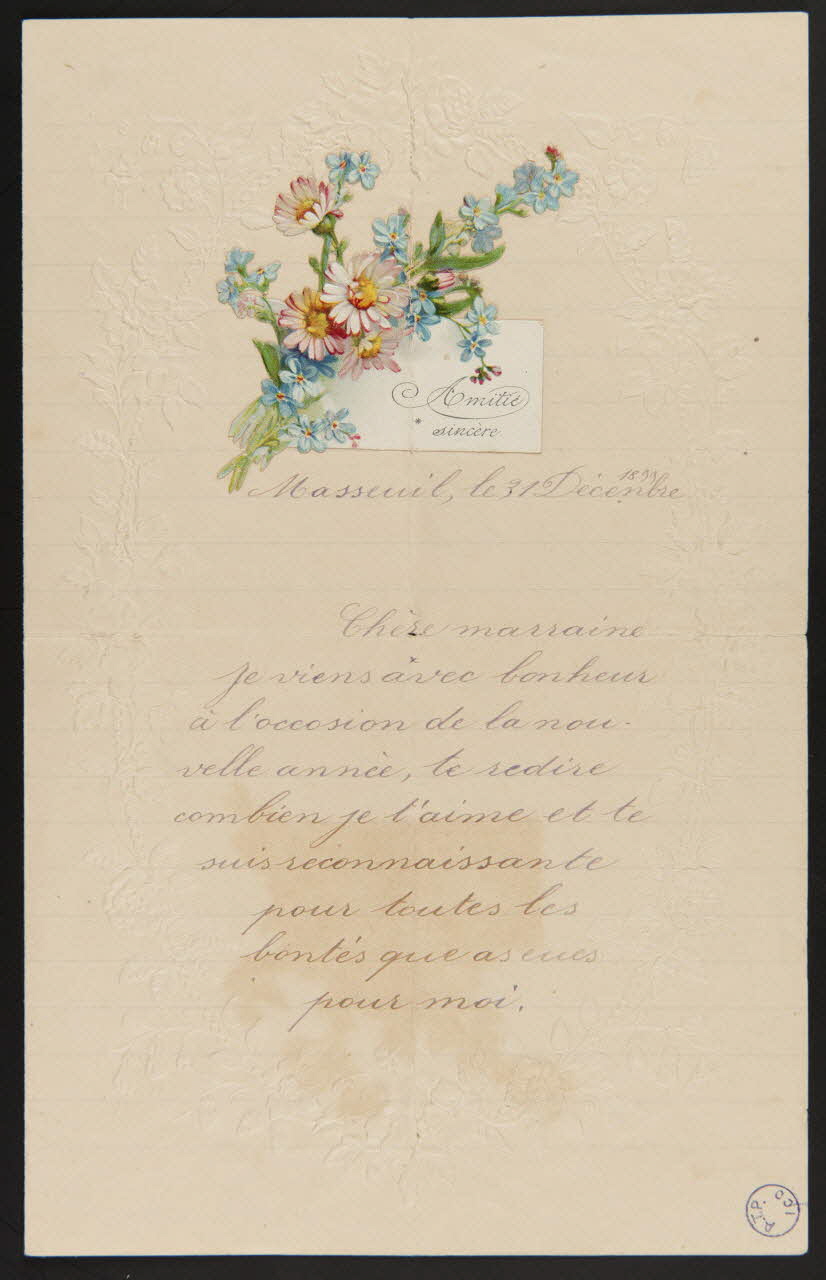 Amitié
sincère
Masseuil, le 31 Décembre
Chère marraine
je viens avec bonheur
à l'occosion de la nou-
velle année, te redire
combien je t'aime et te
suis reconnaissante
pour toutes les
bontés que as eues
pour moi.
A.T.P.
ICO